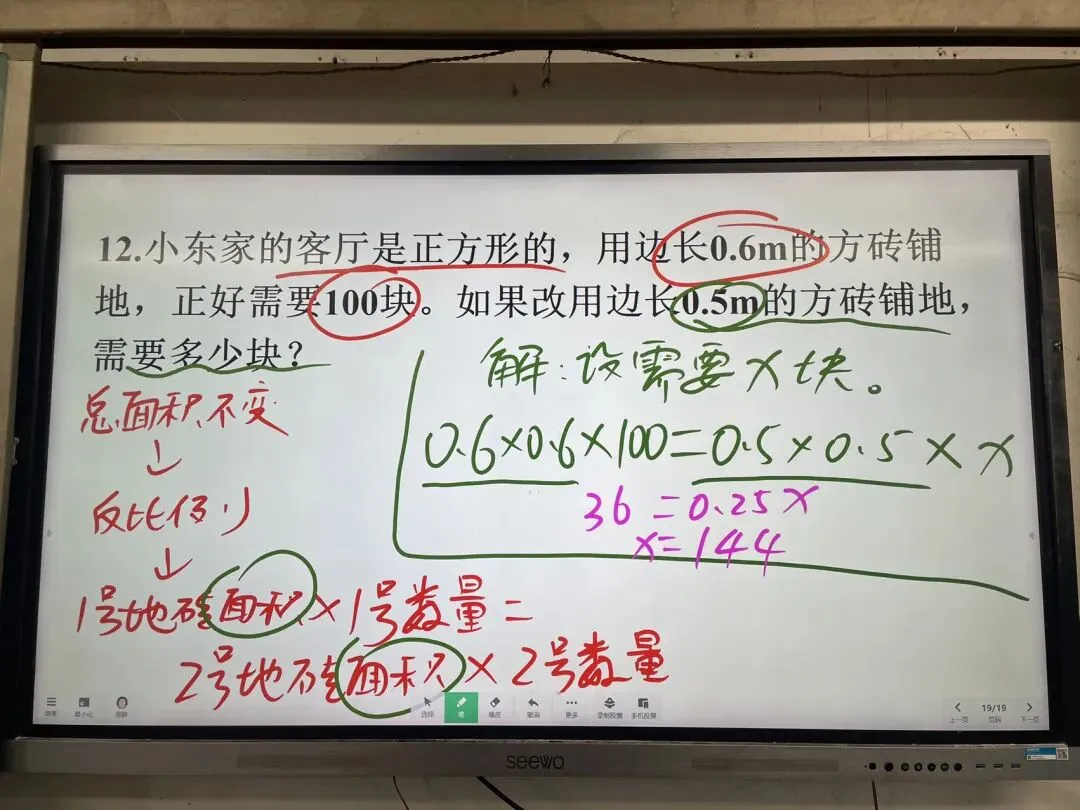 12.小东家的客厅是正方形的，用边长0.6m的方砖铺
地，正好需要100块。如果改用边长0.5m的方砖铺地，
需要多少块？
解：设需要x块。
0.6×0.6×100=0.5×0.5×x
36=0.25x
x=144
总面积不变
↓
反比例
↓
1号地砖面积×1号数量=
2号地砖面积×2号数量
选择
笔
橡皮
撤消
更多
录制胶囊
手机投屏
上一页
19/19
页码
下一页
seewo